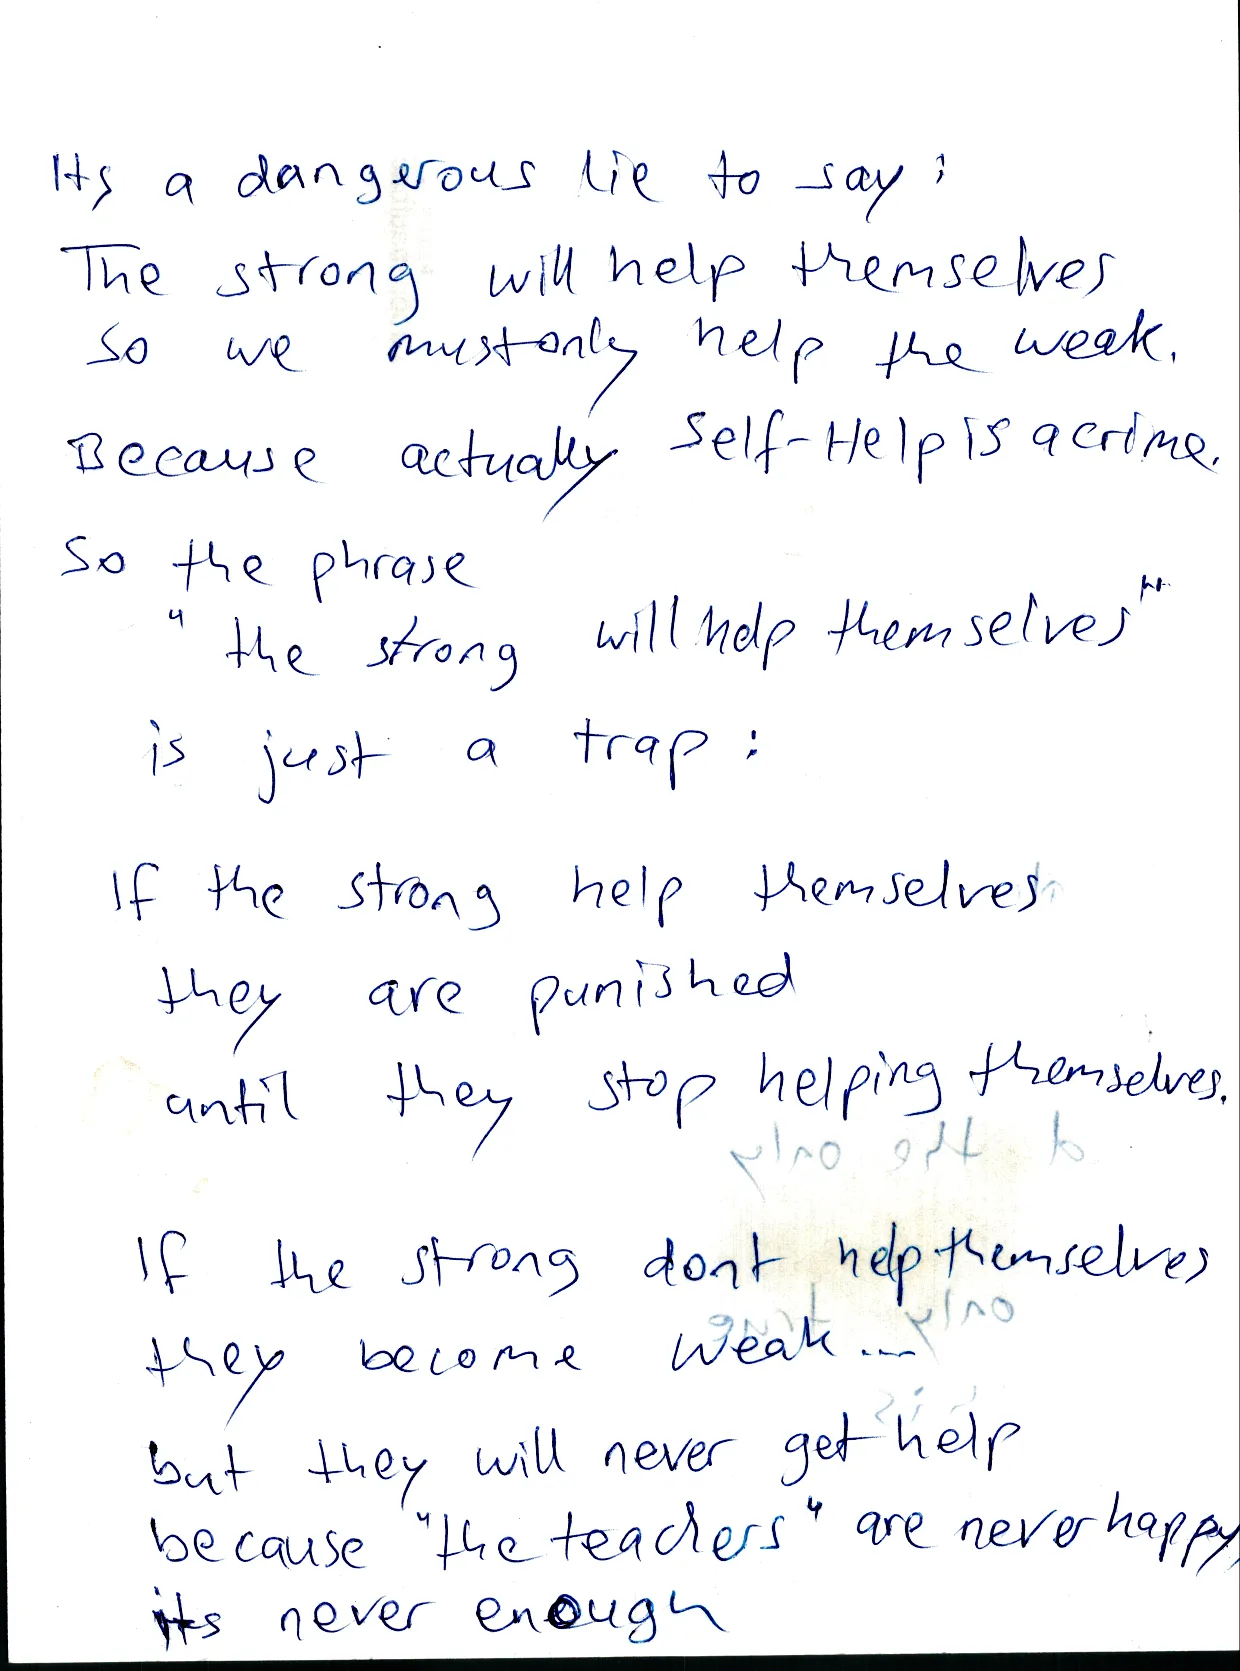 Its a dangerous lie to say:
The strong will help themselves
so we must only help the weak.
Because actually Self-Help is a crime.
So the phrase
"the strong will help themselves"
is just a trap:
If the strong help themselves
they are punished
until they stop helping themselves.
If the strong dont help themselves
they become weak...
but they will never get help
because "the teachers" are never happy,
its never enough